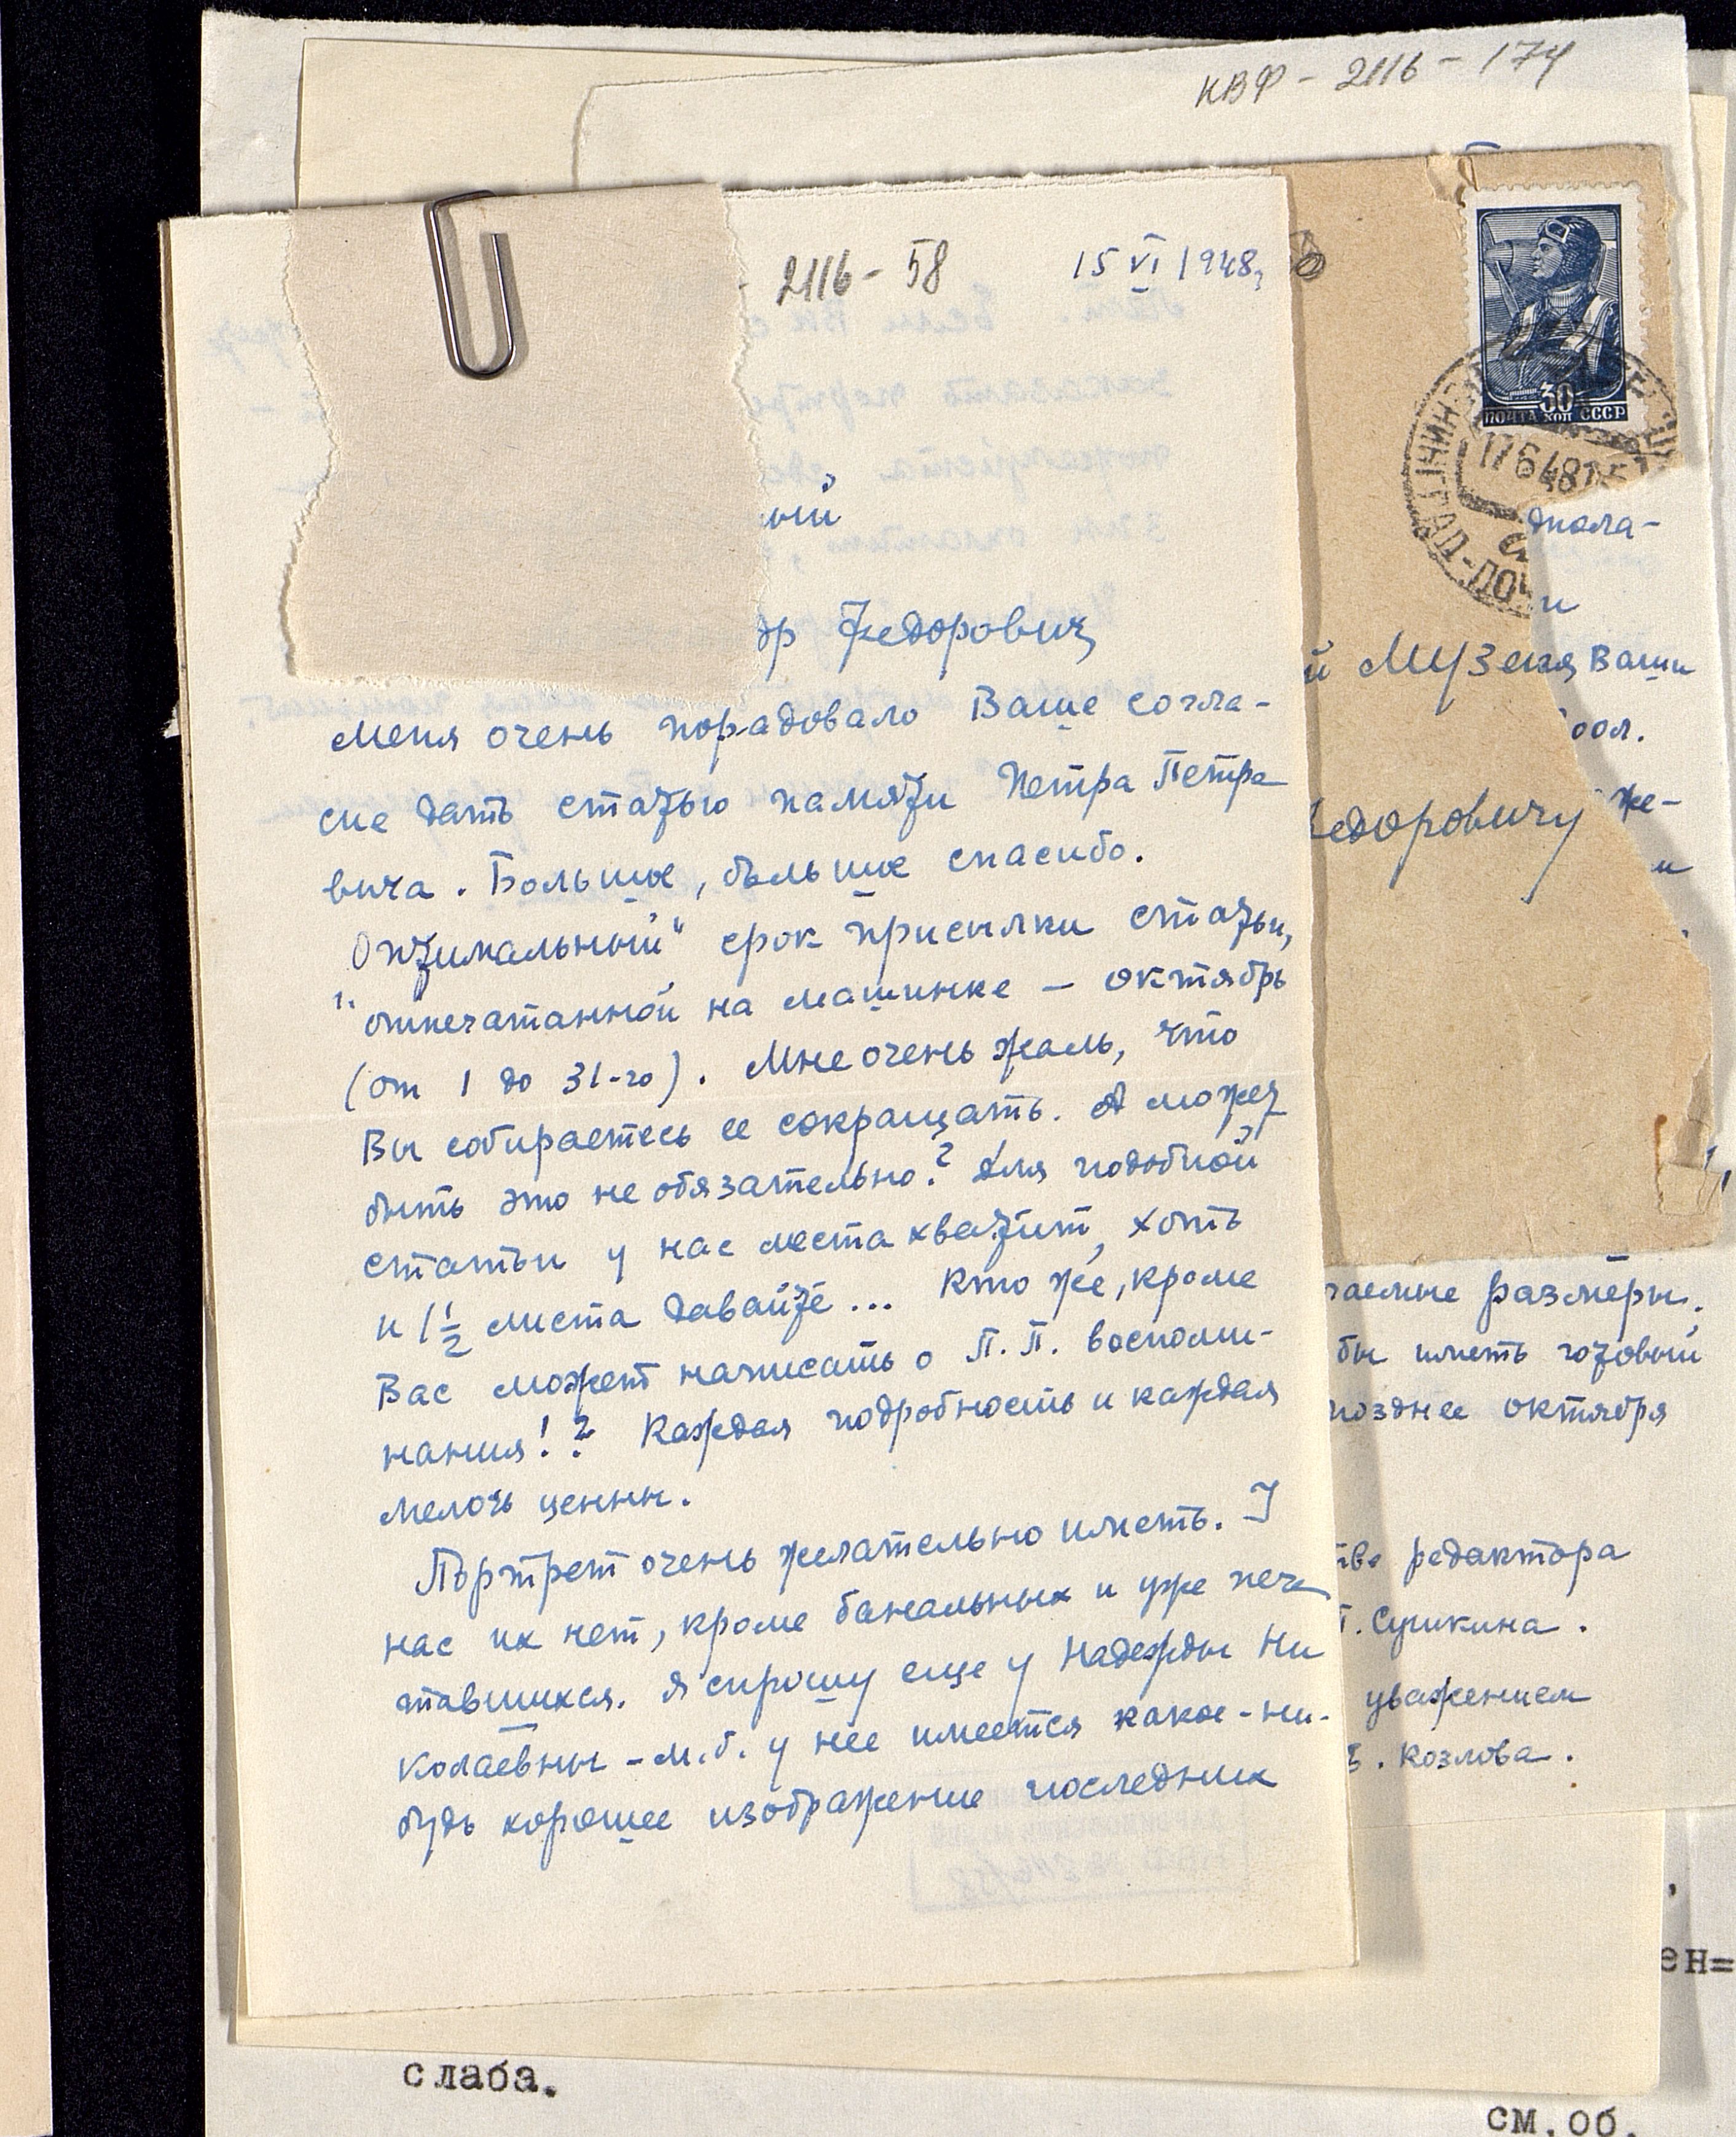 КВФ - 2116 - 174
2116 - 58
15 VI 1948,
ый
ор Федорович
Меня очень порадовало Ваше согла-
сие дать статью памяти Петра Петро
вича. Большое, большое спасибо.
„Оптимальный" срок присылки статьи,
отпечатанной на машинке – октябрь
(от 1 до 31-го). Мне очень жаль, что
Вы собираетесь ее сокращать. А может
быть это не обязательно? Для подобной
статьи у нас места хватит, хоть
и 1 1/2 листа давайте... Кто же, кроме
Вас может написать о П. П. воспоми-
нания!? Каждая подробность и каждая
мелочь ценны.
Портрет очень желательно иметь. У
нас их нет, кроме банальных и уже печа
тавшихся. Я спрошу еще у Надежды Ни
колаевны – м.б. у нее имеется какое-ни-
будь хорошее изображение последних
ПОЧТА 30 КОП СССР
17 6 48
дпола-
и
й Музея Ваши
оол.
едоровичу
же-
и
гаемые размеры.
бы иметь готовый
позднее октября
тво редактора
П. Сушкина.
уважением
Козлова.
ен=
слаба.
см.об.